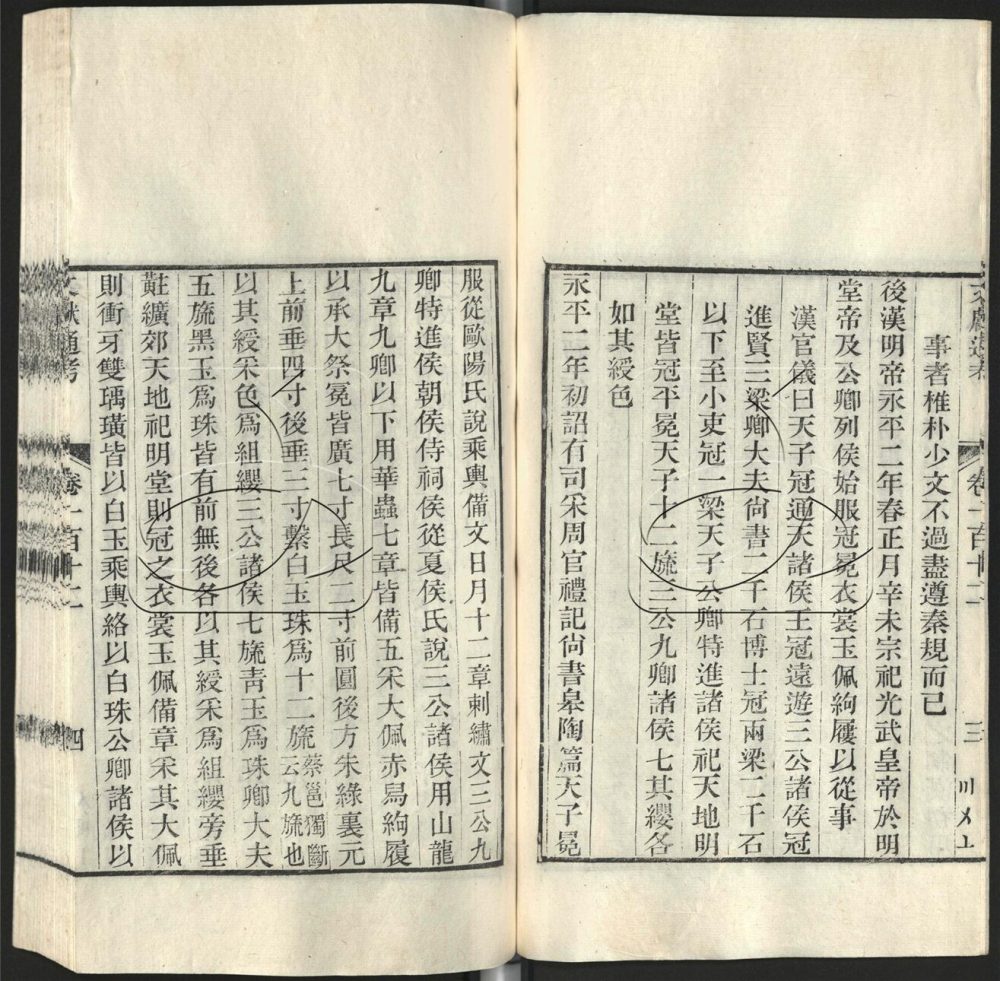 文獻通考
卷一百十二
三
〣〤〦
事者椎朴少文不過盡遵秦規而已
後漢明帝永平二年春正月辛未宗祀光武皇帝於明
堂帝及公卿列侯始服冠冕衣裳玉佩絇屨以從事
漢官儀曰天子冠通天諸侯王冠遠遊三公諸侯冠
進賢三梁卿大夫尚書二千石博士冠兩梁二千石
以下至小吏冠一梁天子公卿特進諸侯祀天地明
堂皆冠平冕天子十二旒三公九卿諸侯七其纓各
如其綬色
永平二年初詔有司采周官禮記尚書皋陶篇天子冕
服從歐陽氏說乘輿備文日月十二章刺繡文三公九
卿特進侯朝侯侍祠侯從夏侯氏說三公諸侯用山龍
九章九卿以下用華蟲七章皆備五采大佩赤舄絇履
以承大祭冕皆廣七寸長尺二寸前圓後方朱綠裏元
上前垂四寸後垂三寸繫白玉珠爲十二旒蔡邕獨斷云九旒也
以其綬采色爲組纓三公諸侯七旒靑玉爲珠卿大夫
五旒黑玉爲珠皆有前無後各以其綬采爲組纓旁垂
黈纊郊天地祀明堂則冠之衣裳玉佩備章采其大佩
則衝牙雙瑀璜皆以白玉乘輿絡以白珠公卿諸侯以
文獻通考
卷一百十二
四